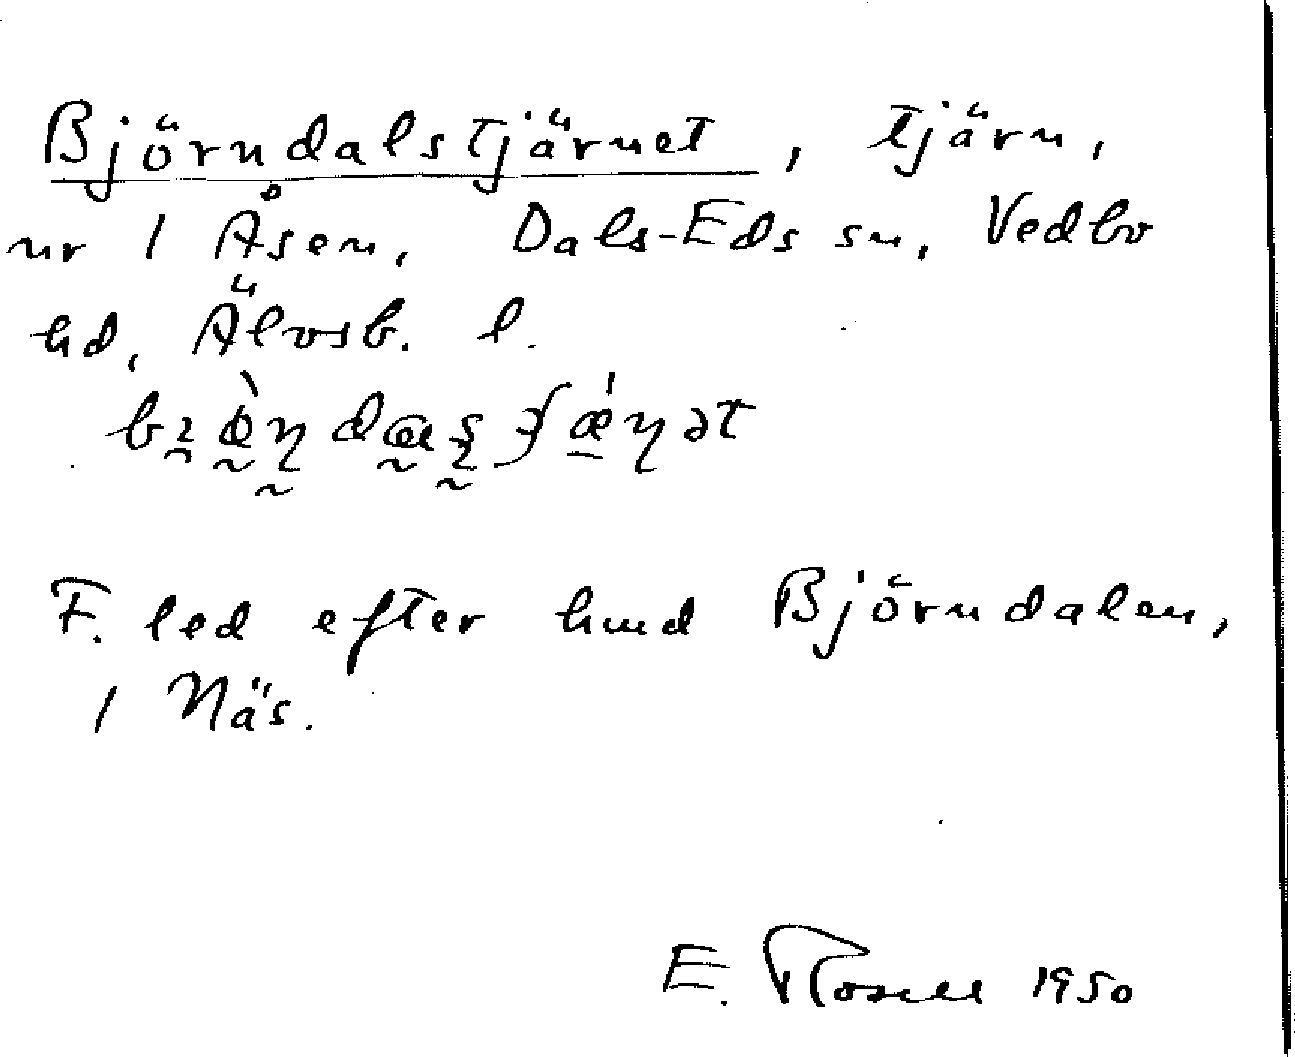 Björndalstjärnet, tjärn,
nr 1 Åsen, Dals-Eds sn, Vedbo
hd, Älvsb. l.
F. led efter hmd Björndalen,
1 Näs.
E. Rosell 1950